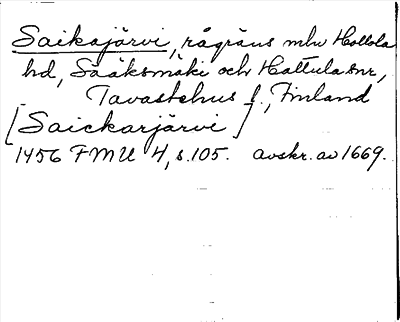 Saikajärvi, rågräns mlw Hollola
hd, Sääksmäki och Hattula snr,
Tavastehus l., Finland
[Saickarjärvi]
1456 FMU 4, s. 105. avskr. av 1669.